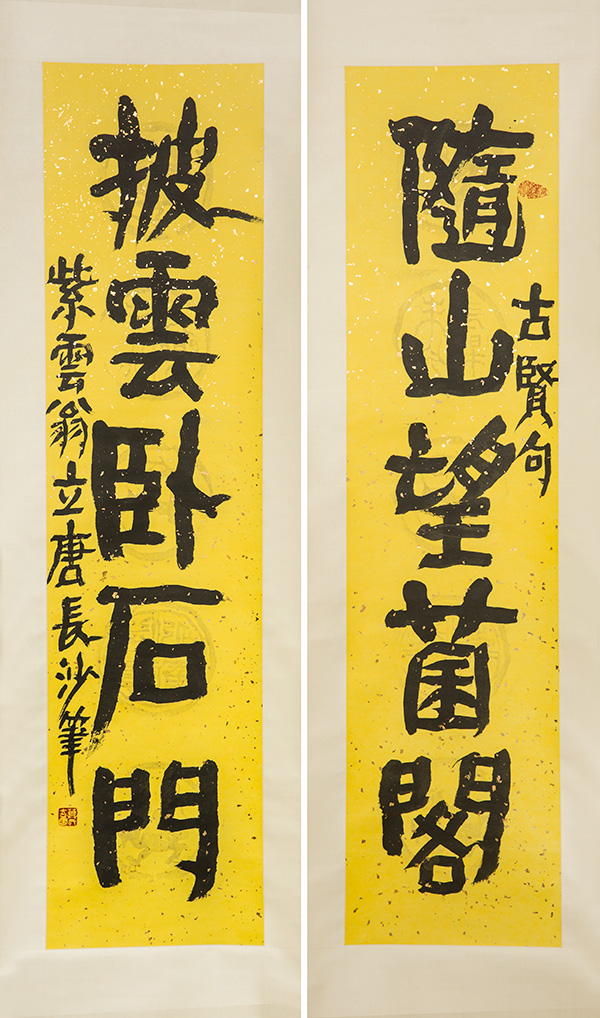 隨山望菌閣
古賢句
披雲卧石門
紫雲翁立唐長沙筆